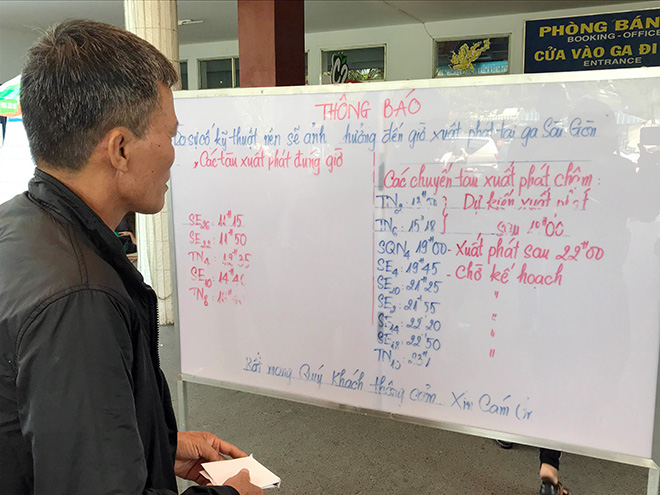 PHÒNG BÁN
BOOKING - OFFICE
CỬA VÀO GA ĐI
ENTRANCE
THÔNG BÁO
Do sự cố kỹ thuật nên sẽ ảnh hưởng đến giờ xuất phát tại ga Sài Gòn
Các tàu xuất phát đúng giờ
SE26 11H15
SE22 11H50
SE10 14H40
TN8
Các chuyến tàu xuất phát chậm:
TN2 Dự kiến xuất phát
TN6 15H18 sau
SQN4 19H00 - Xuất phát sau 22H00
SE4 19H45 - Chờ kế hoạch
SE20: 21H25 "
SE2: 21H55 "
SE14: 22H20 "
SE18: 22H50 "
TN10
Rất mong Quý Khách thông cảm. Xin Cảm Ơn